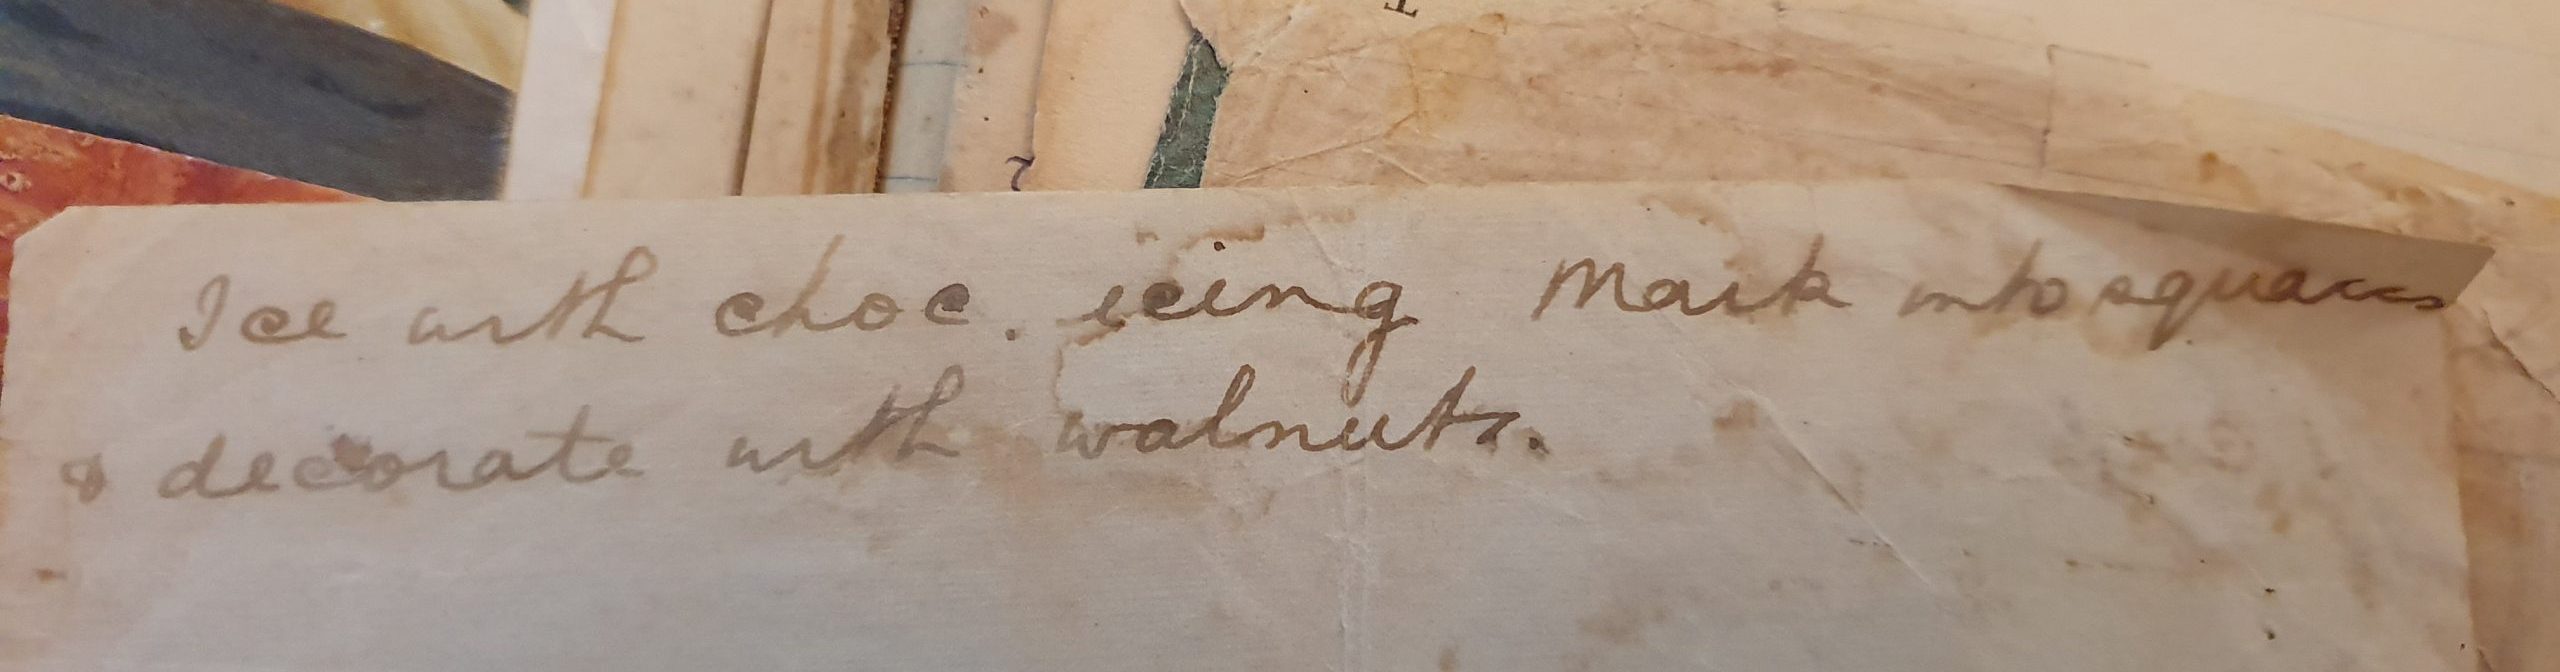 Ice with choc. icing Mark into squares
& decorate with walnuts.